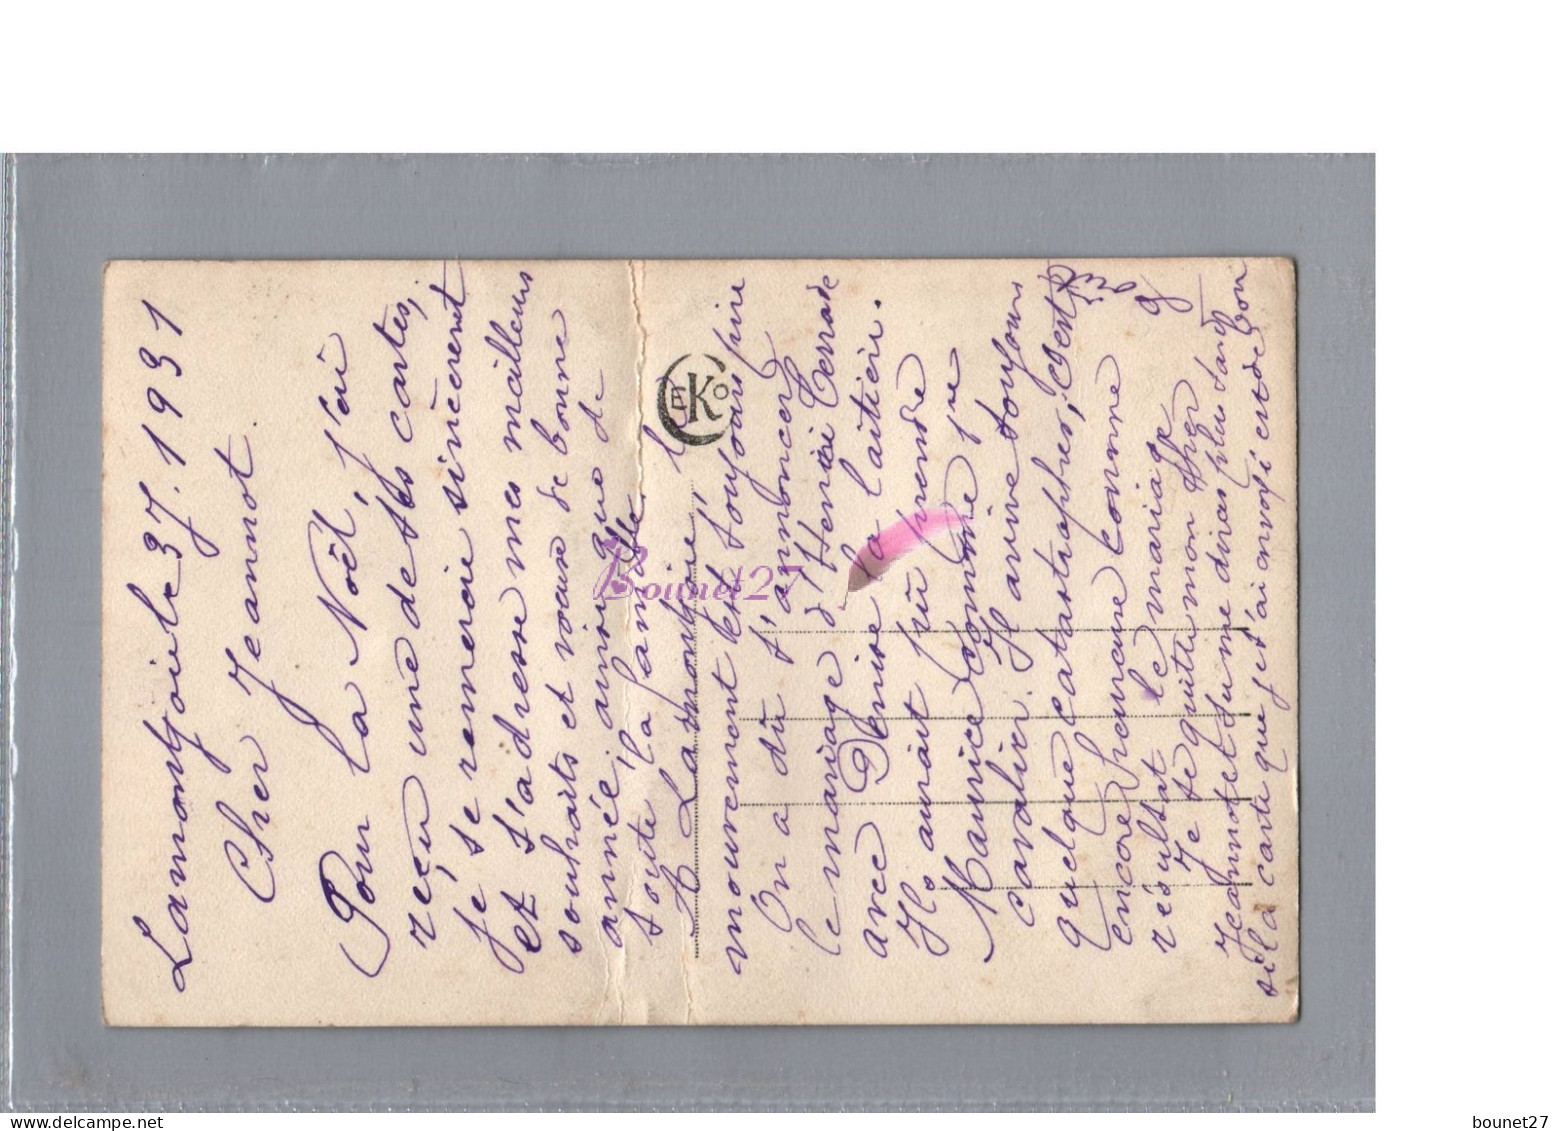 Lamontjoie le 37.1931
Cher Jeannot.
Pour la Noël, j'ai
reçu une de tes cartes,
je te remercie sincèrement
et t'adresse mes meilleurs
souhaits et voeux de bonne
année, ainsi que de
toute la famille
A Lamontjoie, le
mouvement est toujours pire
On a dû t'annoncer
le mariage d'Henri Terrade
avec Denise la laitière.
Il aurait pû prendre
Maurice comme
cavalier. Il arrive toujours
quelque catastrophes, c'est
encore heureuse comme
resultat le mariage
Je te quitte mon cher
Jeannot et tu me diras plus tard
si la carte que je t'ai envoyé est de bon
CEKO
Bounet27
www.delcampe.net
bounet27